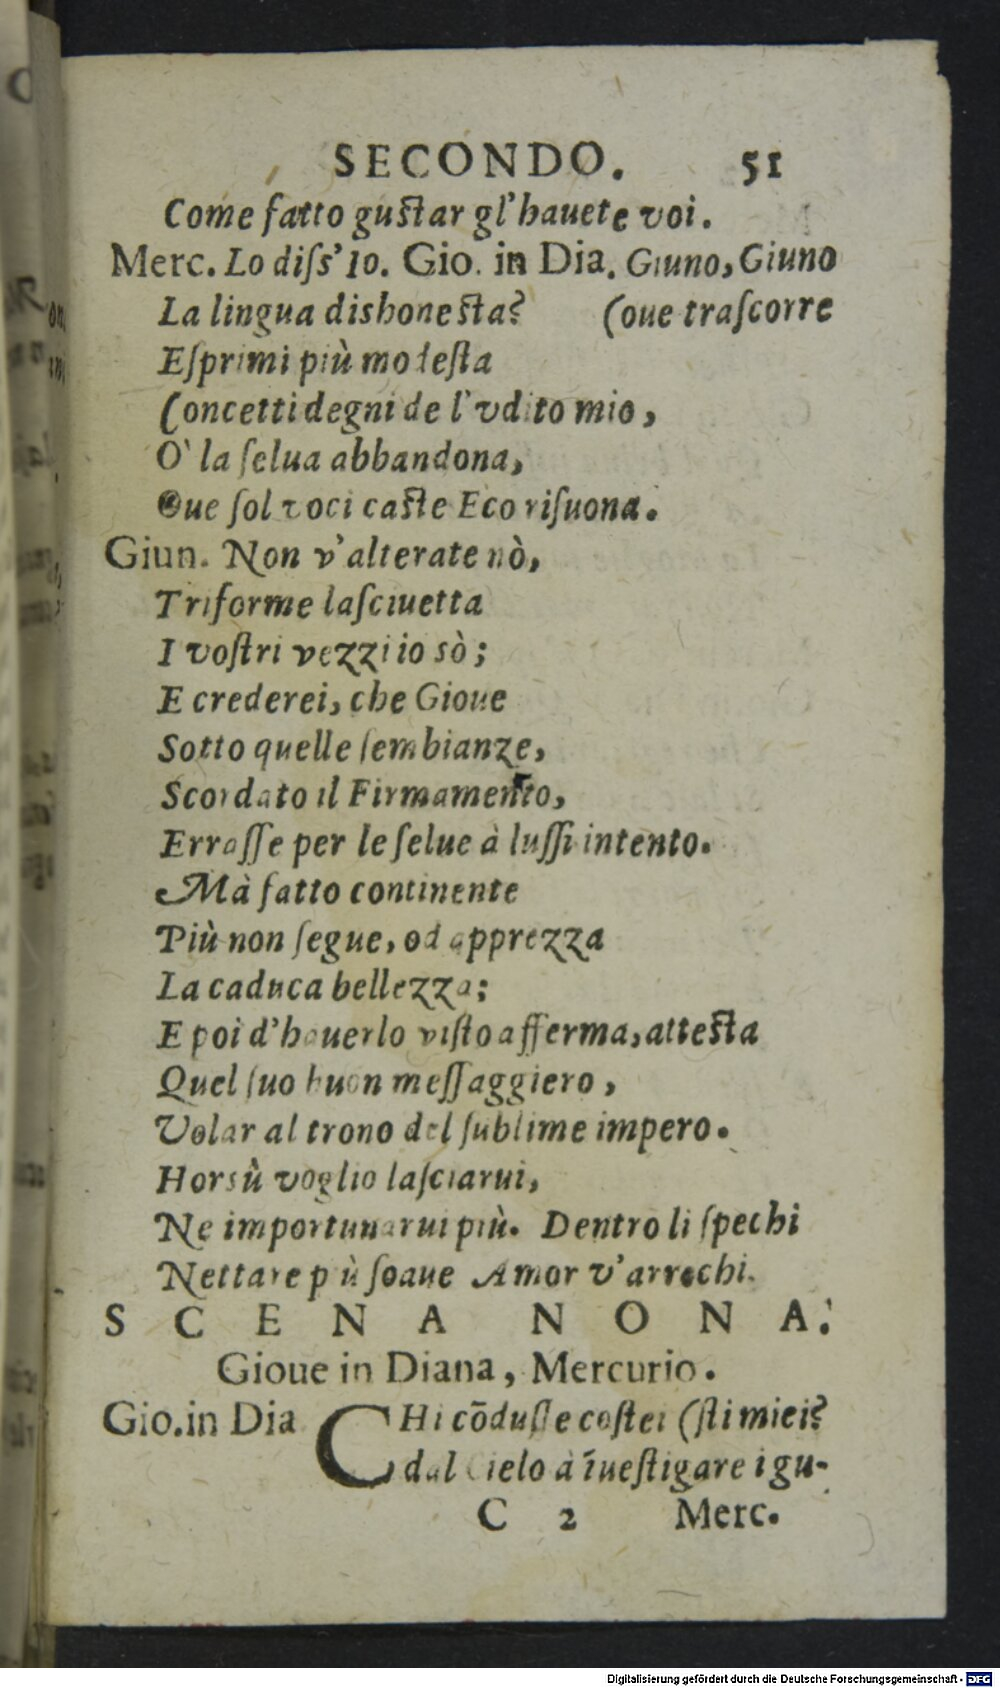 SECONDO. 51
Come fatto guſtar gl'hauete voi.
Merc. Lo diſs'io. Gio. in Dia. Giuno, Giuno
La lingua dishoneſta? (oue traſcorre
Eſprimi più modeſta
Concetti degni de l'vdito mio,
O' la ſelua abbandona,
Oue ſol voci caſte Eco riſuona.
Giun. Non v'alterate nò,
Triforme laſciuetta
I voſtri vezzi io sò;
E crederei, che Gioue
Sotto quelle ſembianze,
Scordato il Firmamento,
Erraſſe per le ſelue à luſſi intento.
Mà fatto continente
Più non ſegue, od apprezza
La caduca bellezza;
E poi d'hauerlo viſto afferma, atteſta
Quel ſuo buon meſſaggiero,
Volar al trono del ſublime impero.
Horsù voglio laſciarui,
Ne importunarui più. Dentro li ſpechi
Nettare più ſoaue Amor v'arrechi.
SCENA NONA.
Gioue in Diana, Mercurio.
Gio. in Dia CHi cōduſſe coſtei (ſti miei?
dal Cielo à īueſtigare i gu-
C 2 Merc.
Digitalisierung gefördert durch die Deutsche Forschungsgemeinschaft - DFG